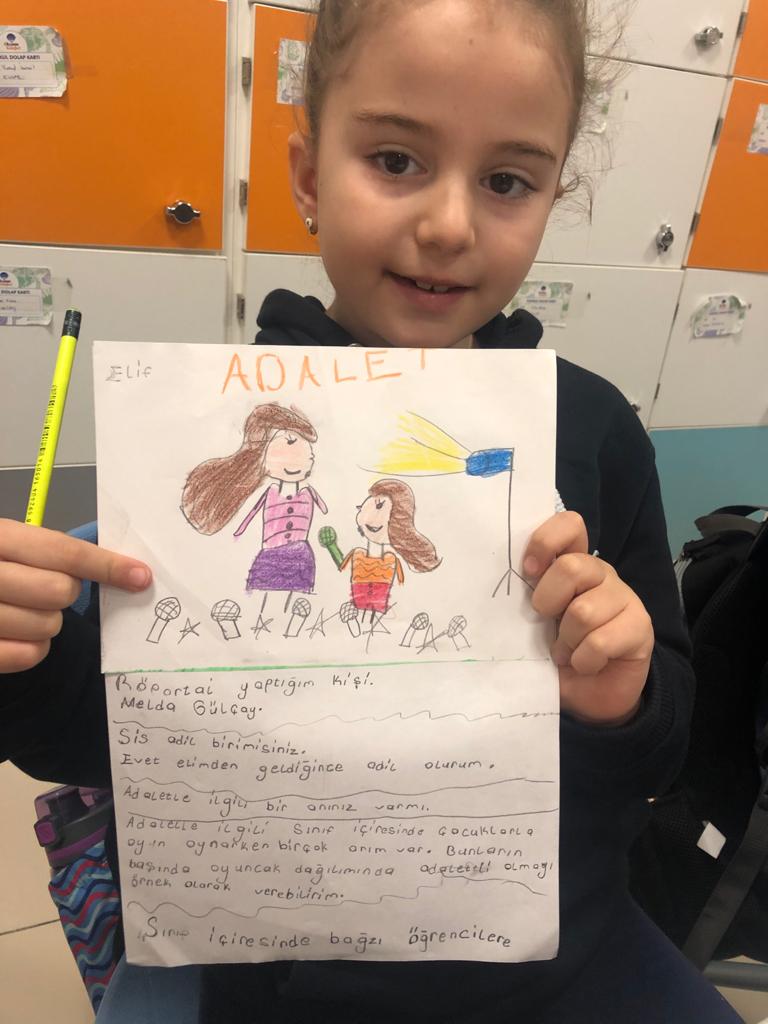 Elif
ADALET
Röportaj yaptığım kişi.
Melda Gülçay.
Sis adil birimisiniz.
Evet elimden geldiğince adil olurum.
Adaletle ilgili bir anınız varmı.
Adaletle ilgili sınıf içiresinde çocuklarla
oyun oynarken birçok anım var. Bunların
başında oyuncak dağılımında adaletli olmayı
örnek olarak verebilirim.
Sınıf içiresinde bağzı öğrencilere
DOLAP KARTI